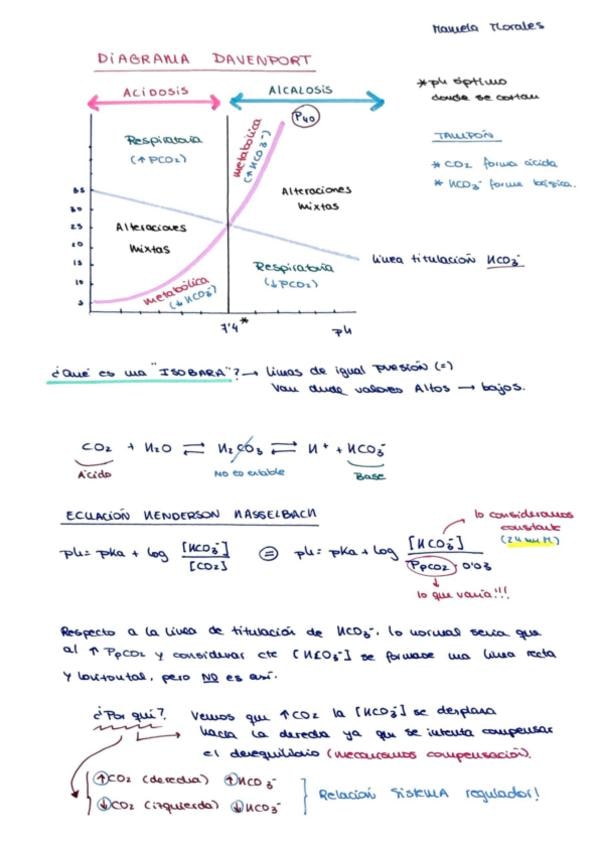 Manuela Morales
DIAGRAMA DAVENPORT
ACIDOSIS
ALCALOSIS
*pH óptimo
donde se cortan
P40
Respiratoria
(↑PCO2)
metabólica
(↑HCO3-)
TAMPÓN
* CO2 forma ácida
* HCO3- forma básica.
Alteraciones
mixtas
35
30
25
20
15
10
5
Alteraciones
mixtas
línea titulación HCO3-
Respiratoria
(↓PCO2)
metabólica
(↓HCO3-)
7'4*
pH
¿Qué es una "ISOBARA"? → líneas de igual presión (=)
Van desde valores Altos → bajos.
CO2 + H2O ⇌ H2CO3 ⇌ H+ + HCO3-
Ácido
NO es estable
Base
ECUACIÓN HENDERSON HASSELBACH
lo consideramos
constante
(24 mM)
pH = pKa + log [HCO3-] / [CO2] = pH = pKa + log [HCO3-] / PpCO2 · 0'03
lo que varía!!!
Respecto a la línea de titulación de HCO3-, lo normal sería que
al ↑ PpCO2 y considerar cte [HCO3-] se formase una línea recta
y horizontal, pero NO es así.
¿Por qué? Vemos que ↑CO2 la [HCO3-] se desplaza
hacia la derecha ya que se intenta compensar
el desequilibrio (mecanismos compensación).
↑CO2 (derecha) ↑HCO3-
↓CO2 (izquierda) ↓HCO3-
Relación sistema regulador!